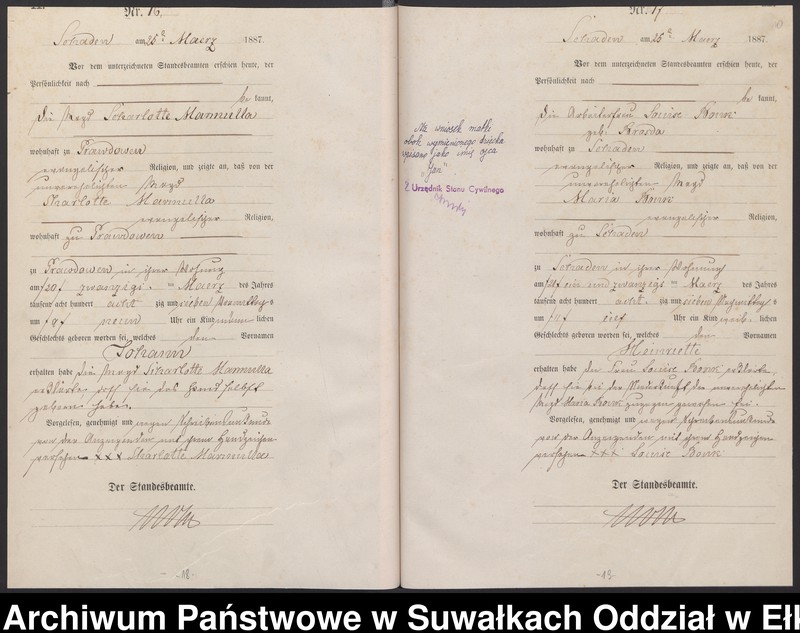 Nr. 16.
am 25ten Maerz 1887.
Vor dem unterzeichneten Standesbeamten erschien heute, der
Persönlichkeit nach
be kannt,
die Magd Scharlotte Mannulla
wohnhaft zu Prawdowen
evangelischer Religion, und zeigte an, daß von der
unverehelichten Magd
Charlotte Mannulla
evangelischer Religion,
wohnhaft zu Prawdowen
zu Prawdowen in ihrer Wohnung
am 20 zwanzig ten Maerz des Jahres
tausend acht hundert acht zig und sieben Vormittags
um 9 neun Uhr ein Kind männ lichen
Geschlechts geboren worden sei, welches den Vornamen
Johann
erhalten habe die Magd Scharlotte Mannulla
erklärte, daß sie das Kind selbst
geboren habe.
Vorgelesen, genehmigt und wegen Schreibensunkunde
von der Anzeigenden mit ihrem Handzeichen
versehen xxx Charlotte Mannulla
Der Standesbeamte.
-18-
Na wniosek matki
obok wymienionego dziecka
wpisano jako imię ojca
"Jan".
Urzędnik Stanu Cywilnego
Nr. 17
am 25ten Maerz 1887.
Vor dem unterzeichneten Standesbeamten erschien heute, der
Persönlichkeit nach
be kannt,
die Arbeiterfrau Louise
geb.
wohnhaft zu
evangelischer Religion, und zeigte an, daß von der
unverehelichten Magd
Maria
evangelischer Religion,
wohnhaft zu
zu in ihrer Wohnung
am 21 ein und zwanzig ten Maerz des Jahres
tausend acht hundert acht zig und sieben
um elf Uhr ein Kind weib lichen
Geschlechts geboren worden sei, welches den Vornamen
Heinriette
erhalten habe die Frau Louise erklärte,
daß sie bei der Niederkunft der unverehelichten
Magd Maria zugegen gewesen sei.
Vorgelesen, genehmigt und wegen Schreibensunkunde
von der Anzeigenden mit ihrem Handzeichen
versehen xxx Louise
Der Standesbeamte.
-19-
Archiwum Państwowe w Suwałkach Oddział w Eł